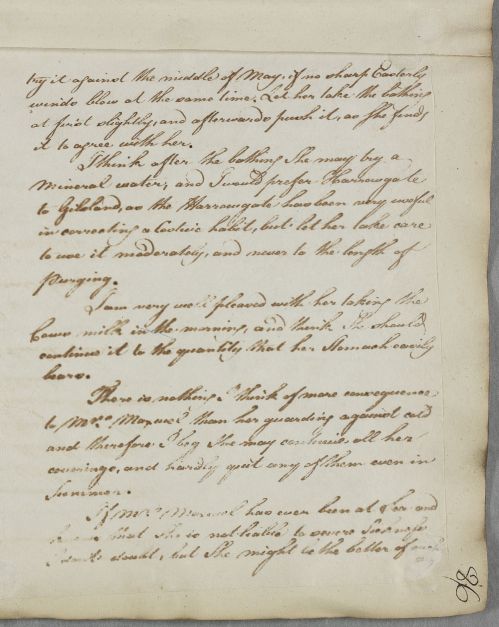 try it against the middle of May, if no sharp Easterly
winds blow at the same time. Let her take the bathing
at first slightly, and afterwards push it, as She finds
it to agree with her.
I think after the bathing She may try a
mineral water, and I would prefer Harrowgate
to Gilsland, as the Harrowgate has been very useful
in correcting a Costive habit, but let her take care
to use it moderately, and never to the length of
purging.
I am very well pleased with her taking the
Cows milk in the morning, and think She should
continue it to the quantity that her Stomach easily
bears.
There is nothing I think of more consequence
to Mrs. Maxwel than her guarding against cold
and therefore I beg She may continue all her
coverings, and hardly quit any of them even in
Summer.
If Mrs. Maxwel has ever been at Sea and
that She is not liable to severe Sickness
doubt, but She might be the better of
98